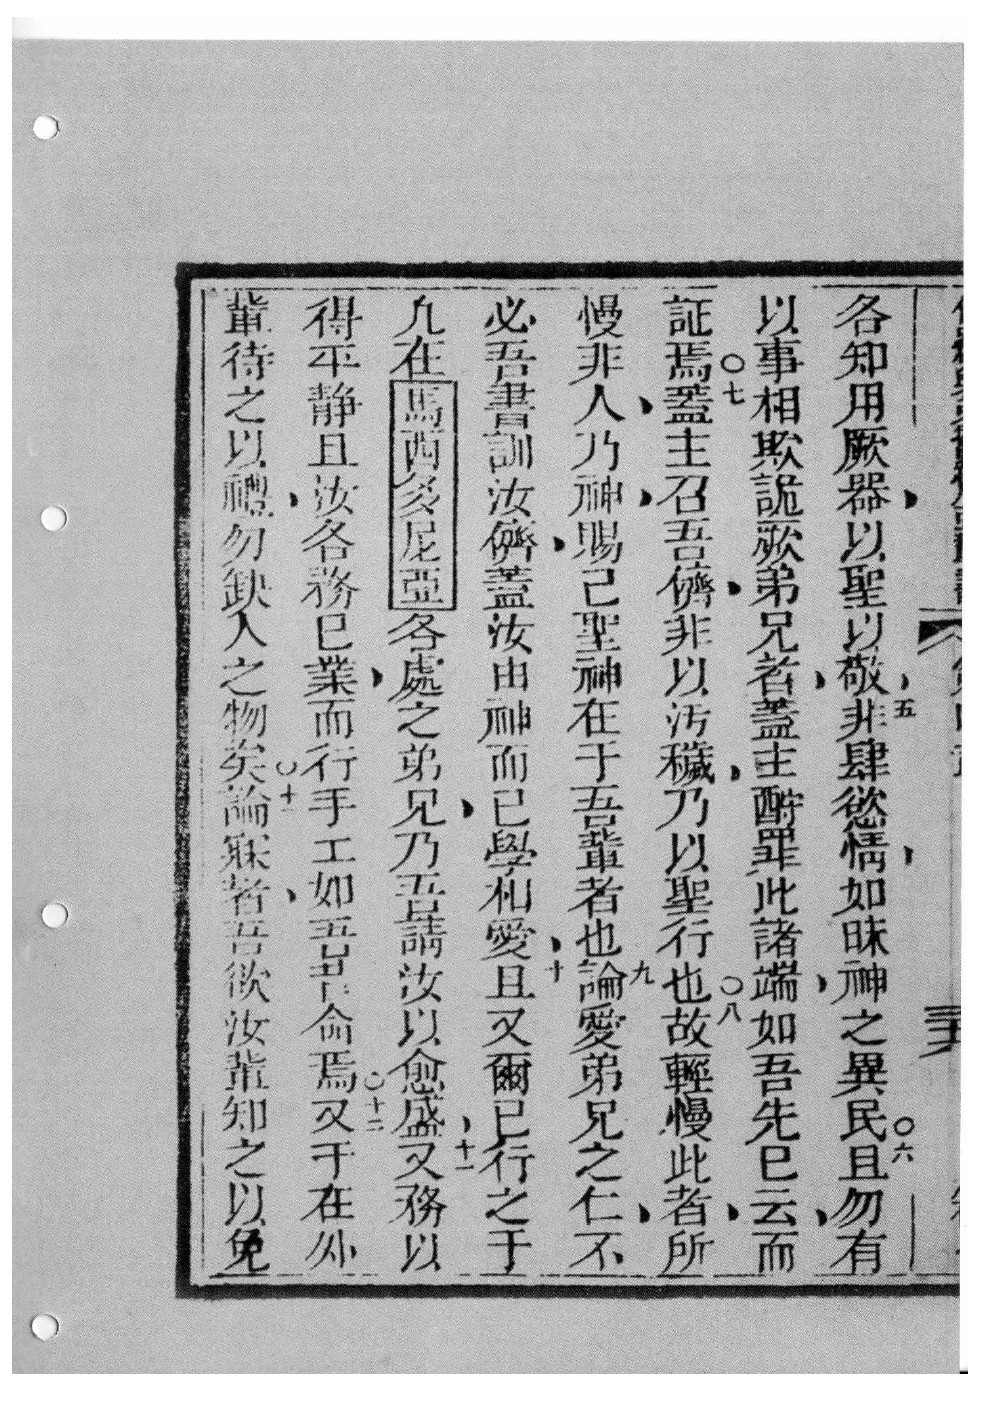 各知用厥器以聖以敬五非肆慾情如昧神之異民○六且勿有
以事相欺詭厥弟兄者蓋主酧罪此諸端如吾先已云而
証焉○七蓋主召吾儕非以汚穢乃以聖行也○八故輕慢此者所
慢非人乃神賜己聖神在于吾輩者也九論愛弟兄之仁不
必吾書訓汝儕蓋汝由神而已學相愛十且又爾已行之于
凡在馬西多尼亞各處之弟兄乃吾請汝以愈盛十一又務以
得平靜且汝各務己業而行手工如吾昔命焉○十二又于在外
輩待之以禮勿缺人之物矣○十三論寐者吾欲汝輩知之以免